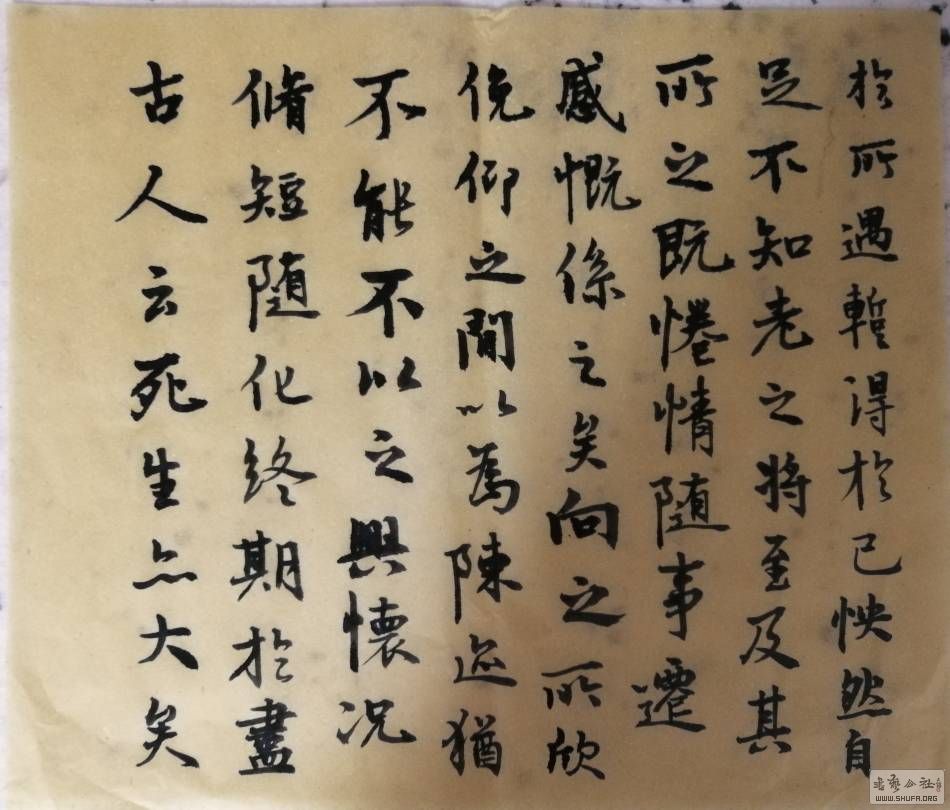 於所遇暫得於己怏然自
足不知老之將至及其
所之既惓情隨事遷
感慨係之矣向之所欣
俛仰之間以為陳迹猶
不能不以之興懷況
脩短隨化終期於盡
古人云死生亦大矣
WWW.SHUFA.ORG